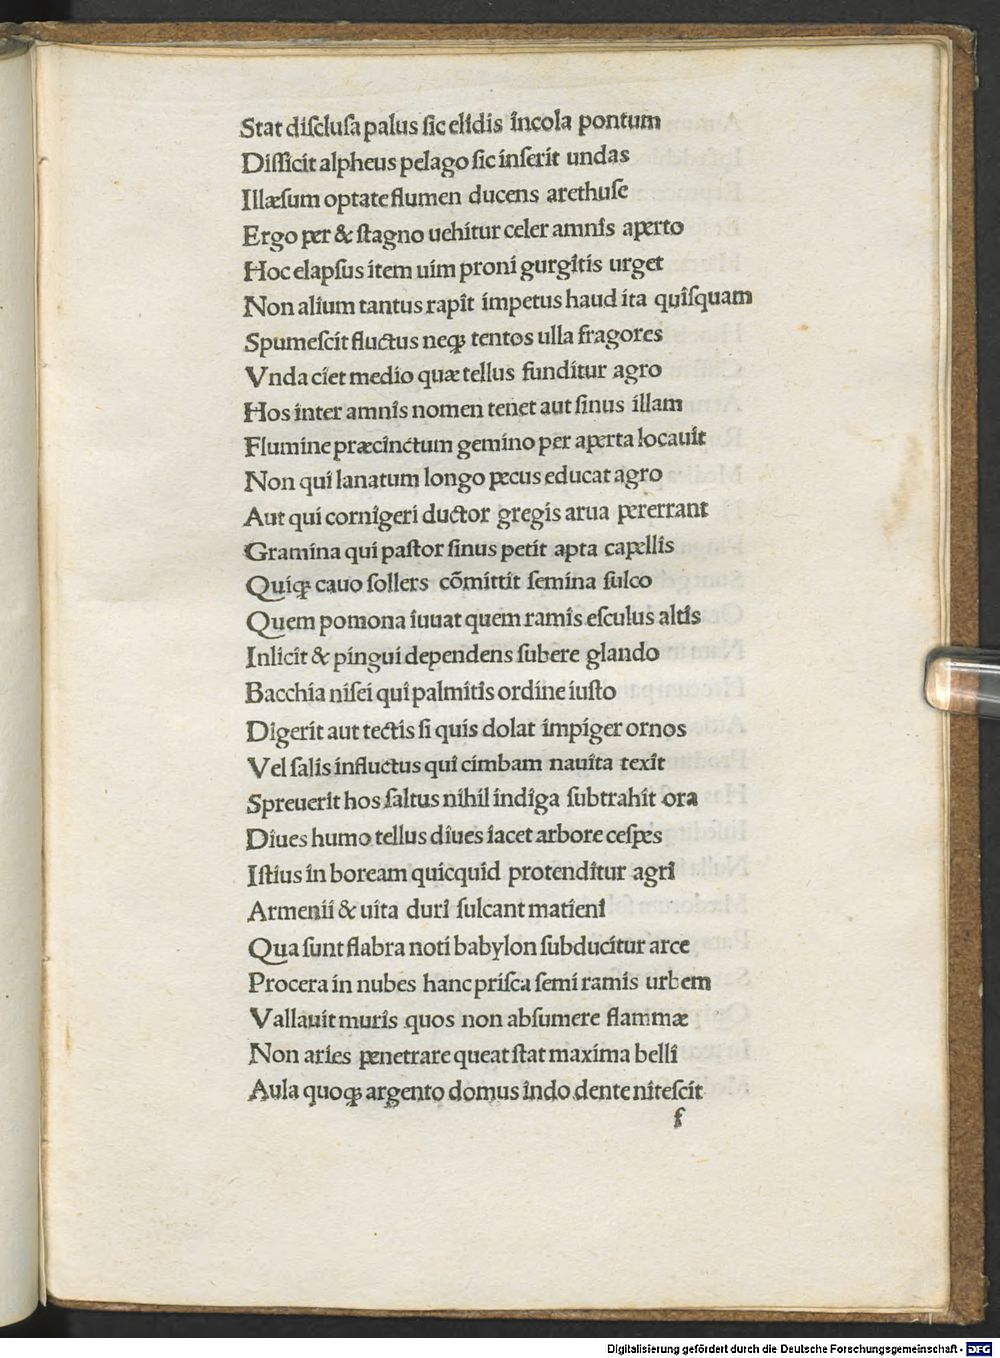 Stat diſcluſa palus ſic elidis incola pontum
Diſſicit alpheus pelago ſic inſerit undas
Illæſum optate flumen ducens arethuſe
Ergo per & ſtagno uehitur celer amnis aperto
Hoc elapſus item uim proni gurgitis urget
Non alium tantus rapit impetus haud ita quiſquam
Spumeſcit fluctus neqꝫ tentos ulla fragores
Vnda ciet medio quæ tellus funditur agro
Hos inter amnis nomen tenet aut ſinus illam
Flumine præcinctum gemino per aperta locauit
Non qui lanatum longo pecus educat agro
Aut qui cornigeri ductor gregis arua pererrant
Gramina qui paſtor ſinus petit apta capellis
Quiqꝫ cauo ſollers cõmittit ſemina ſulco
Quem pomona iuuat quem ramis eſculus altis
Inlicit & pingui dependens ſubere glando
Bacchia niſei qui palmitis ordine iuſto
Digerit aut tectis ſi quis dolat impiger ornos
Vel ſalis influctus qui cimbam nauita texit
Spreuerit hos ſaltus nihil indiga ſubtrahit ora
Diues humo tellus diues iacet arbore ceſpes
Iſtius in boream quicquid protenditur agri
Armenii & uita duri ſulcant matieni
Qua ſunt flabra noti babylon ſubducitur arce
Procera in nubes hanc priſca ſemi ramis urbem
Vallauit muris quos non abſumere flammæ
Non aries penetrare queat ſtat maxima belli
Aula quoqꝫ argento domus indo dente niteſcit
f
Digitalisierung gefördert durch die Deutsche Forschungsgemeinschaft - DFG